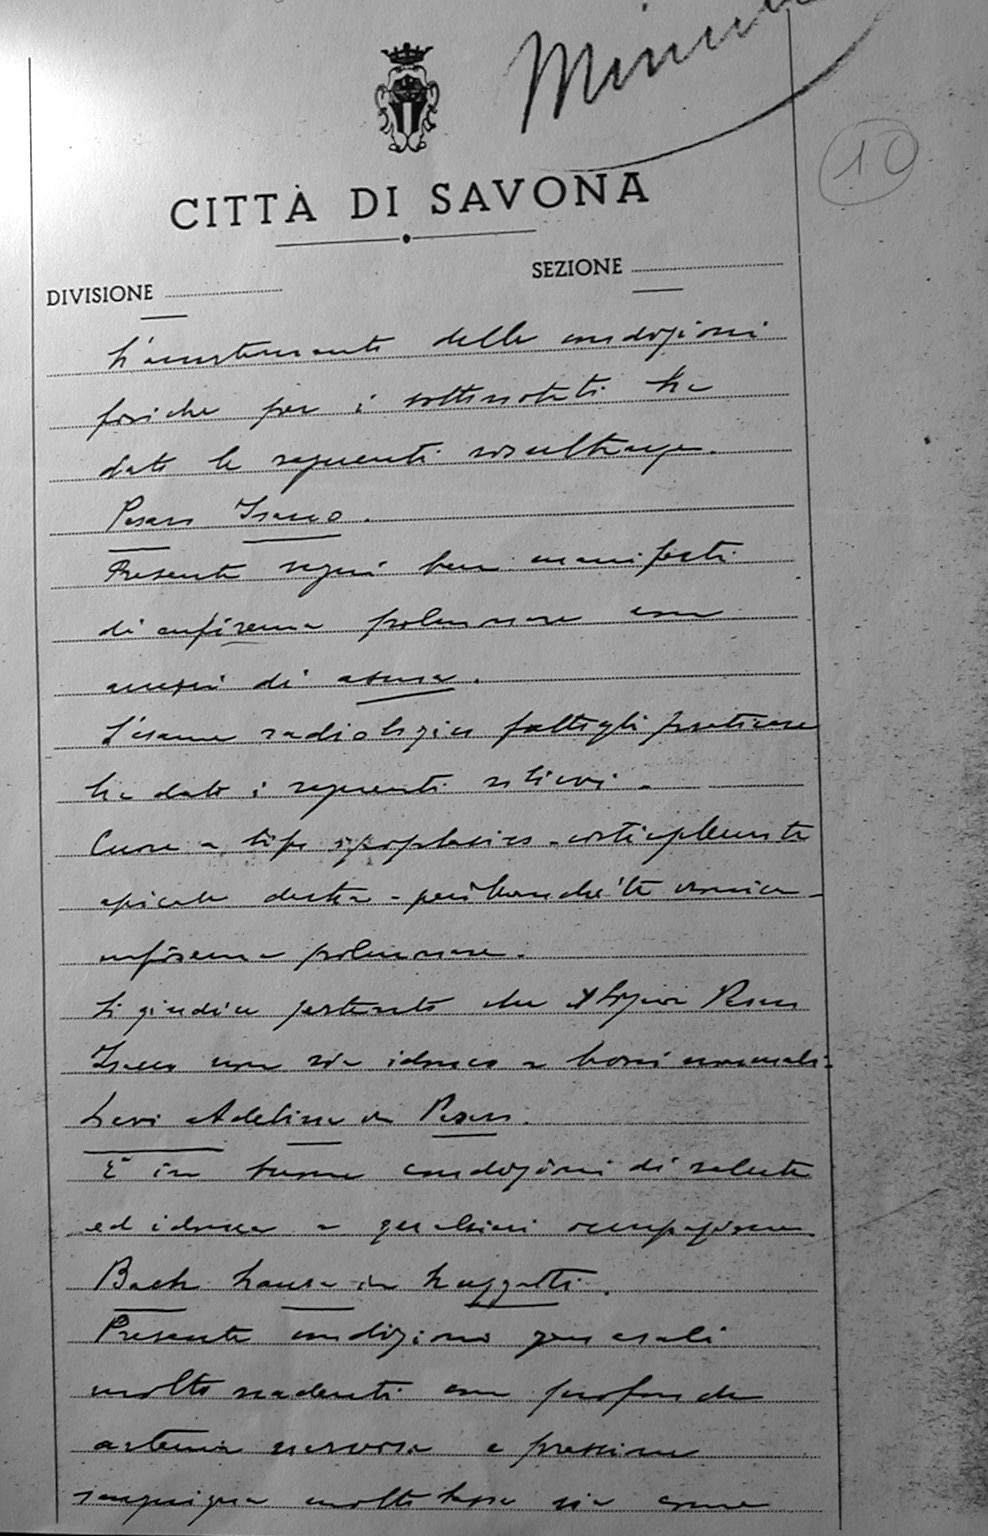 Minuta
10
CITTÀ DI SAVONA
DIVISIONE
SEZIONE
L'accertamento delle condizioni
fisiche per i sottonotati ha
dato le seguenti risultanze.
Pesaro Isacco.
Presenta segni ben manifesti
di enfisema polmonare con
accessi di asma.
L'esame radiologico fattogli praticare
ha dato i seguenti rilievi.
Cuore a tipo ipoplasico - corticopleurite
apicale destra - peribronchite cronica -
enfisema polmonare.
Si giudica pertanto che il Pesaro
Isacco non sia idoneo a lavori manuali.
Levi Adelina in Pesaro.
È in buone condizioni di salute
ed idonea a qualsiasi occupazione
Bach in
Presenta condizioni generali
molto scadenti con profonda
astenia nervosa e pressione
sanguigna molto bassa sia come